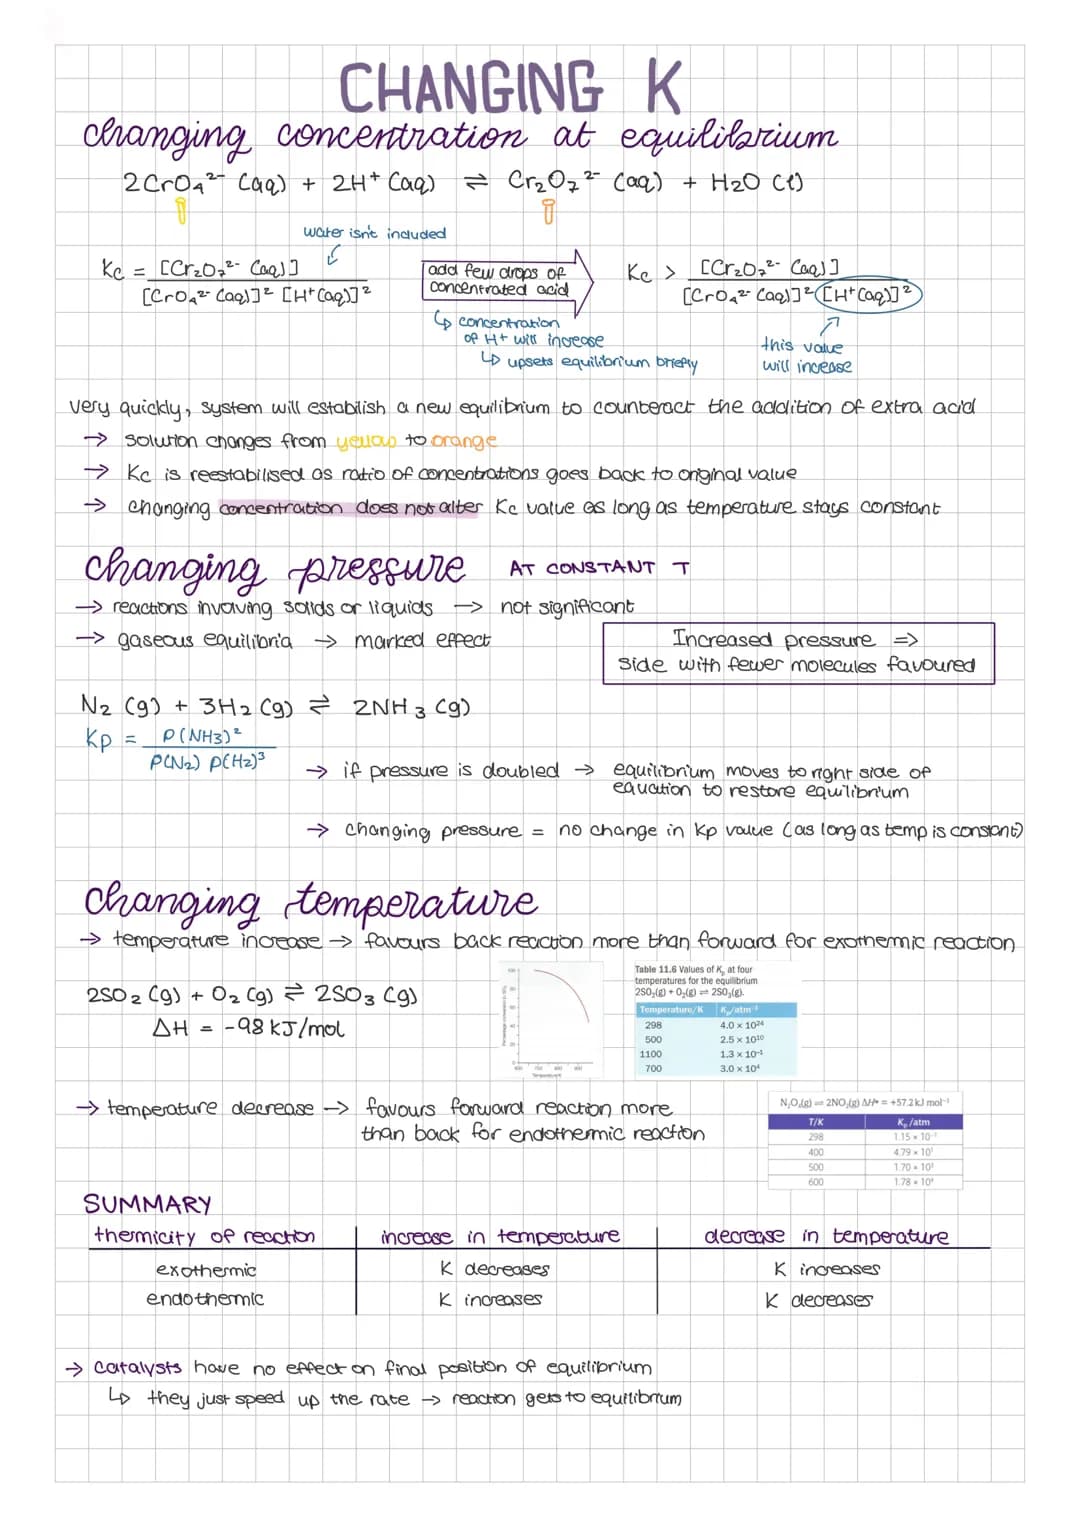 CHANGING K
changing concentration at equilibrium
2CrO₄²⁻ (aq) + 2H⁺ (aq) ⇌ Cr₂O₇²⁻ (aq) + H₂O (l)
water isn't included
Kc = [Cr₂O₇²⁻ (aq)] / [CrO₄²⁻ (aq)]² [H⁺(aq)]²
add few drops of concentrated acid
Kc > [Cr₂O₇²⁻ (aq)] / [CrO₄²⁻ (aq)]² [H⁺(aq)]²
↳ concentration
of H+ will increase
↳ upsets equilibrium briefly
this value
will increase
very quickly, system will estabilish a new equilibrium to counteract the addition of extra acid
→ solution changes from yellow to orange
→ Kc is reestabilised as ratio of concentrations goes back to original value
→ changing concentration does not alter Kc value as long as temperature stays constant
changing pressure AT CONSTANT T
→ reactions involving solids or liquids → not significant
→ gaseous equilibria → marked effect
Increased pressure =>
side with fewer molecules favoured
N₂ (g) + 3H₂ (g) ⇌ 2NH₃ (g)
Kp = P(NH3)² / P(N₂) P(H₂)³
→ if pressure is doubled → equilibrium moves to right side of
equation to restore equilibrium
→ changing pressure = no change in Kp value (as long as temp is constant)
changing temperature
→ temperature increase → favours back reaction more than forward for exothermic reaction
2SO₂ (g) + O₂ (g) ⇌ 2SO₃ (g)
ΔH = -98 kJ/mol
Table 11.6 Values of Kₚ at four
temperatures for the equilibrium
2SO₂(g) + O₂(g) ⇌ 2SO₃(g).
Temperature/K Kₚ/atm⁻¹
298 4.0 × 10²⁴
500 2.5 × 10¹⁰
1100 1.3 × 10⁻¹
700 3.0 × 10⁴
→ temperature decrease → favours forward reaction more
than back for endothermic reaction
N₂O₄(g) ⇌ 2NO₂(g) ΔH° = +57.2 kJ mol⁻¹
T/K Kₚ/atm
298 1.15 × 10⁻¹
400 4.79 × 10¹
500 1.70 × 10³
600 1.78 × 10⁴
SUMMARY
themicity of reaction increase in temperature decrease in temperature
exothermic K decreases K increases
endothermic K increases K decreases
→ catalysts have no effect on final position of equilibrium
↳ they just speed up the rate → reaction gets to equilibrium